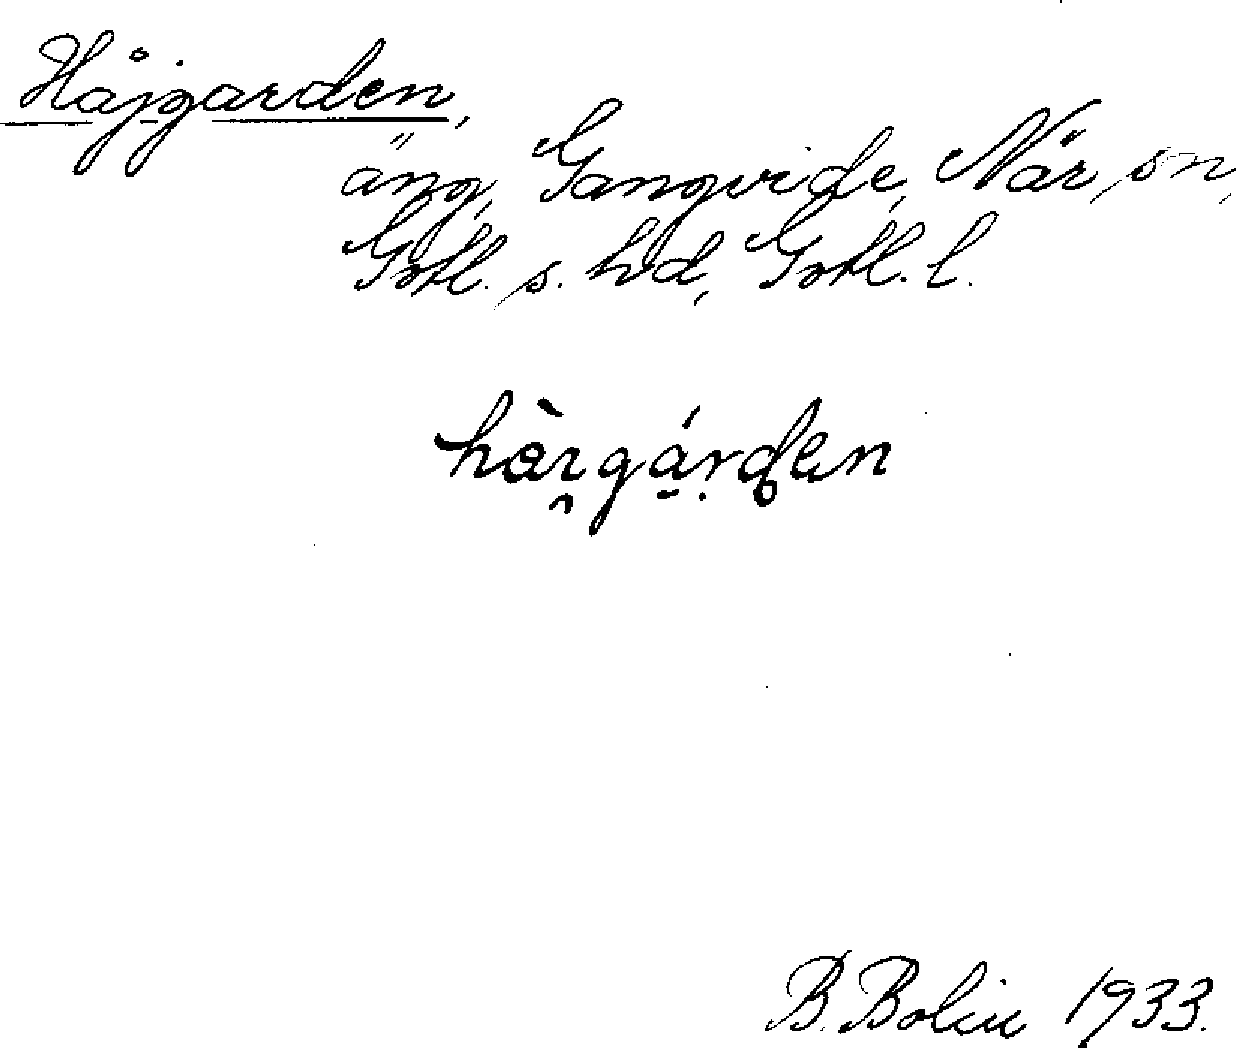 Håjgarden,
äng, Gangvide, När sn,
Gotl. s. hd, Gotl. l.
B. Bolin 1933.